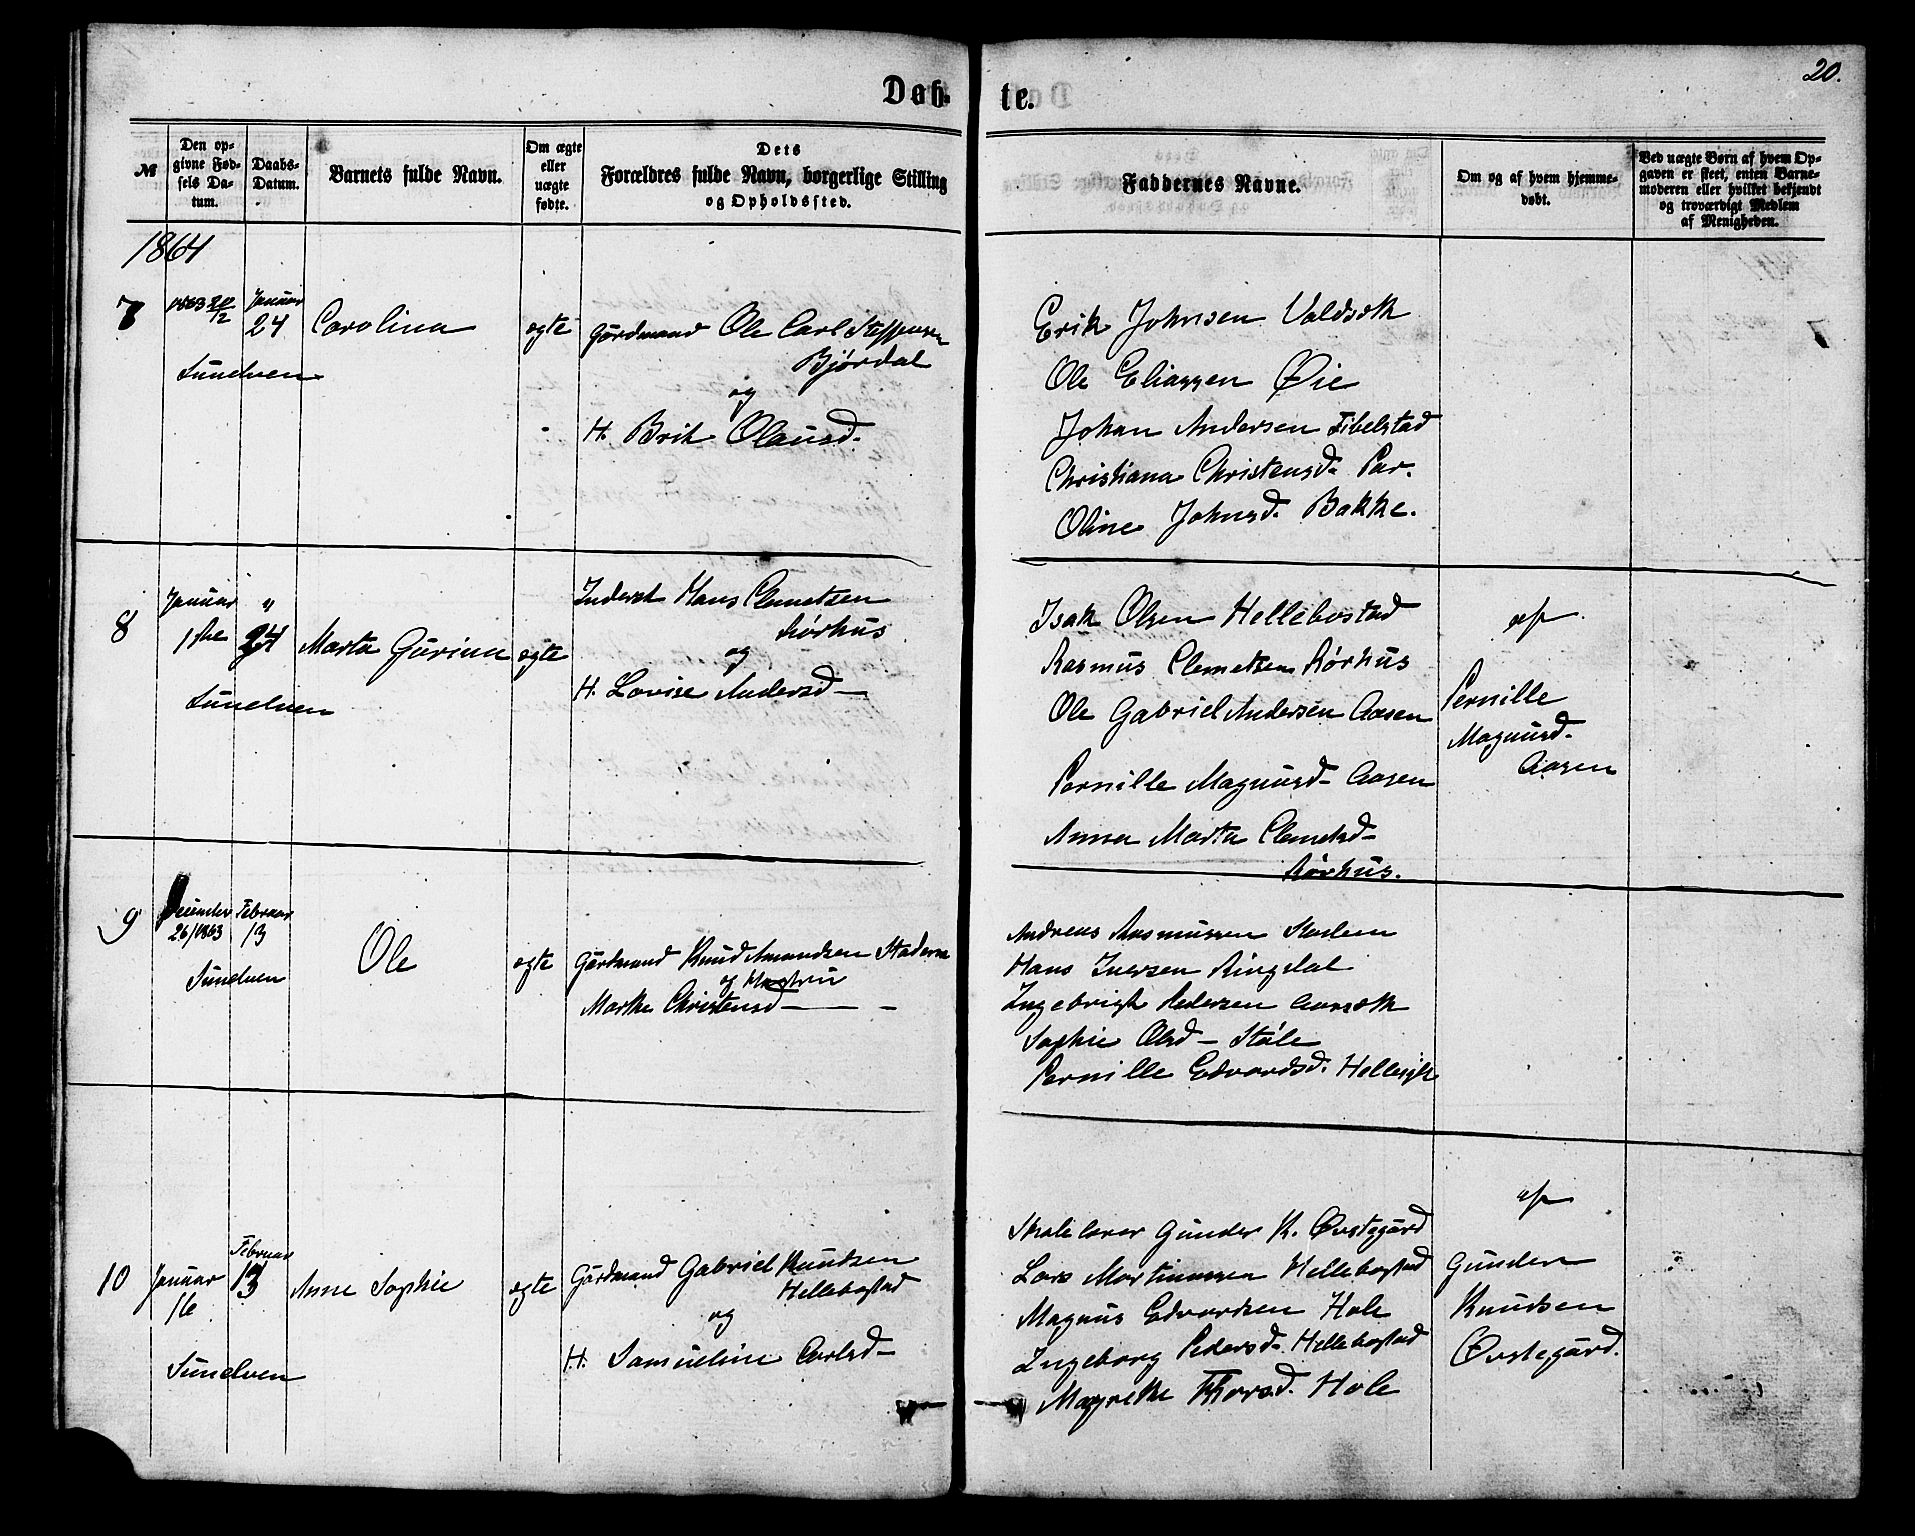 Døb-
te.
20.
№
Den op-
givne Fød-
sels Da-
tum.
Daabs-
Datum.
Barnets fulde Navn.
Om ægte
eller
uægte
fødte.
Dets
Forældres fulde Navn, borgerlige Stilling
og Opholdssted.
Faddernes Navne.
Om og af hvem hjemme-
døbt.
Ved uægte Børn af hvem Op-
gaven er skeet, enten Barne-
moderen eller hvilket bekjendt
og troværdigt Medlem
af Menigheden.
1864
7
1863 20/12
Januar
24
Sunelven
Carolina
egte
Gårdmand Ole Carl Steffensen
Bjørdal
og
H. Brit Olausd.
Erik Johnsen
Ole Eliassen Øie
Johan Andersen Fibelstad
Christiana Christensd.
Oline Johnsd. Bakke.
8
Januar
1ste
"
24
Sunelven
Marta Gurina
egte
Inderst Hans Clemetsen
Rørhus
og
H. Lovise Andersd —
Isak Olsen Hellebostad
Rasmus Clemetsen Rørhus
Ole Gabriel Andersen Aasen
Pernille Magnusd- Aasen
Anna Marta Clemetsd-
Rørhus.
af
Pernille
Magnusd-
Aasen
9
December
26/1863
Februar
13
Sunelven
Ole
egte
Gårdmand Knud Amundsen
og Hustru
Marthe Christensd —
Andreas Rasmussen
Hans Iversen Ringdal
Ingebrigt Pedersen
Sophie Olsd —
Pernille Edvardsd.
10
Januar
16
Februar
13
Sunelven
Anne Sophie
egte
Gårdmand Gabriel Knudsen
Hellebostad
og
H. Samueline Carlsd-
Skolelærer Gunder K. Øvstegård
Lars Martinussen Hellebostad
Magnus Edvardsen Hole
Ingeborg Pedersd- Hellebostad
Magrethe Thorsd. Hole
af
Gunder
Knudsen
Øvstegård.